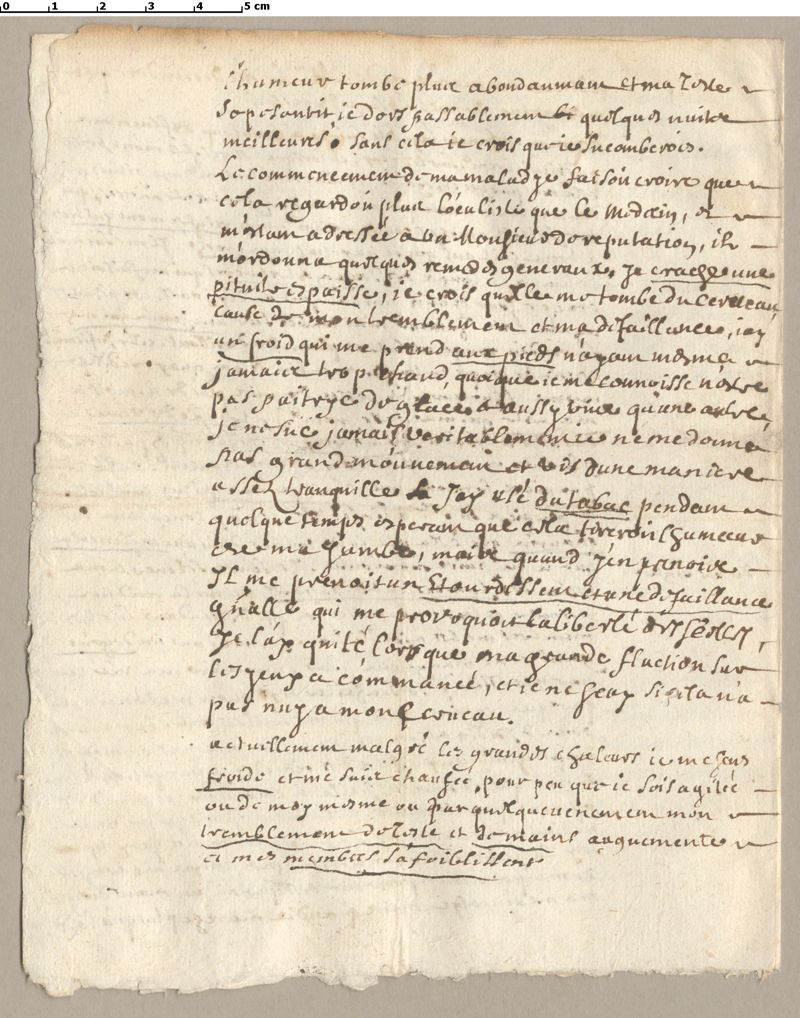 0 1 2 3 4 5 cm
l'humeur tombe plus abondanmant et ma teste
sapesantit je dors passablement et quelques nuits
meilleures, sans cela ie crois que ie sucomberois.
Le commencement de ma maladye faisoit croire que
cela regardoit plus l'oculiste que le medecin, et
m'estam adressée a un Monsieur de reputation, il
m'ordonna quelques remedes generaux, je crache une
pituite espaisse, ie crois quelle me tombe du cerveau
cause de mon tremblement et ma defaillance, iay
un froid qui me prend aux pieds n'ayam mesme
jamais trop chaud, quoique ie me connoisse n'estre
pas paitrye de glace et aussy vive qu'une autre,
je ne sue jamais veritablement ie ne me donne
pas grand mouvement et vis dune maniere
assez tranquille Jay usé du tabac pendam
quelque temps esperam que cela tireroit lhumeur
de ma jambe, mais quand j'en prenois
Il me prenoit un Etourdissem et une defaillance
qui me provoquoit la liberté des selles,
Je lay quité lorsque ma grande fluction sur
les yeux a commancé, et ie ne scay si cela n'a
pas nuy a mon cerveau.
actuellemem malgré les grandes chaleurs ie me sens
froide et me suis chaufée, pour peu que ie sois agitée
ou de moy mesme ou par quelque evenemem mon
tremblement de teste et de mains augmente
et mes membres s'afoiblissent